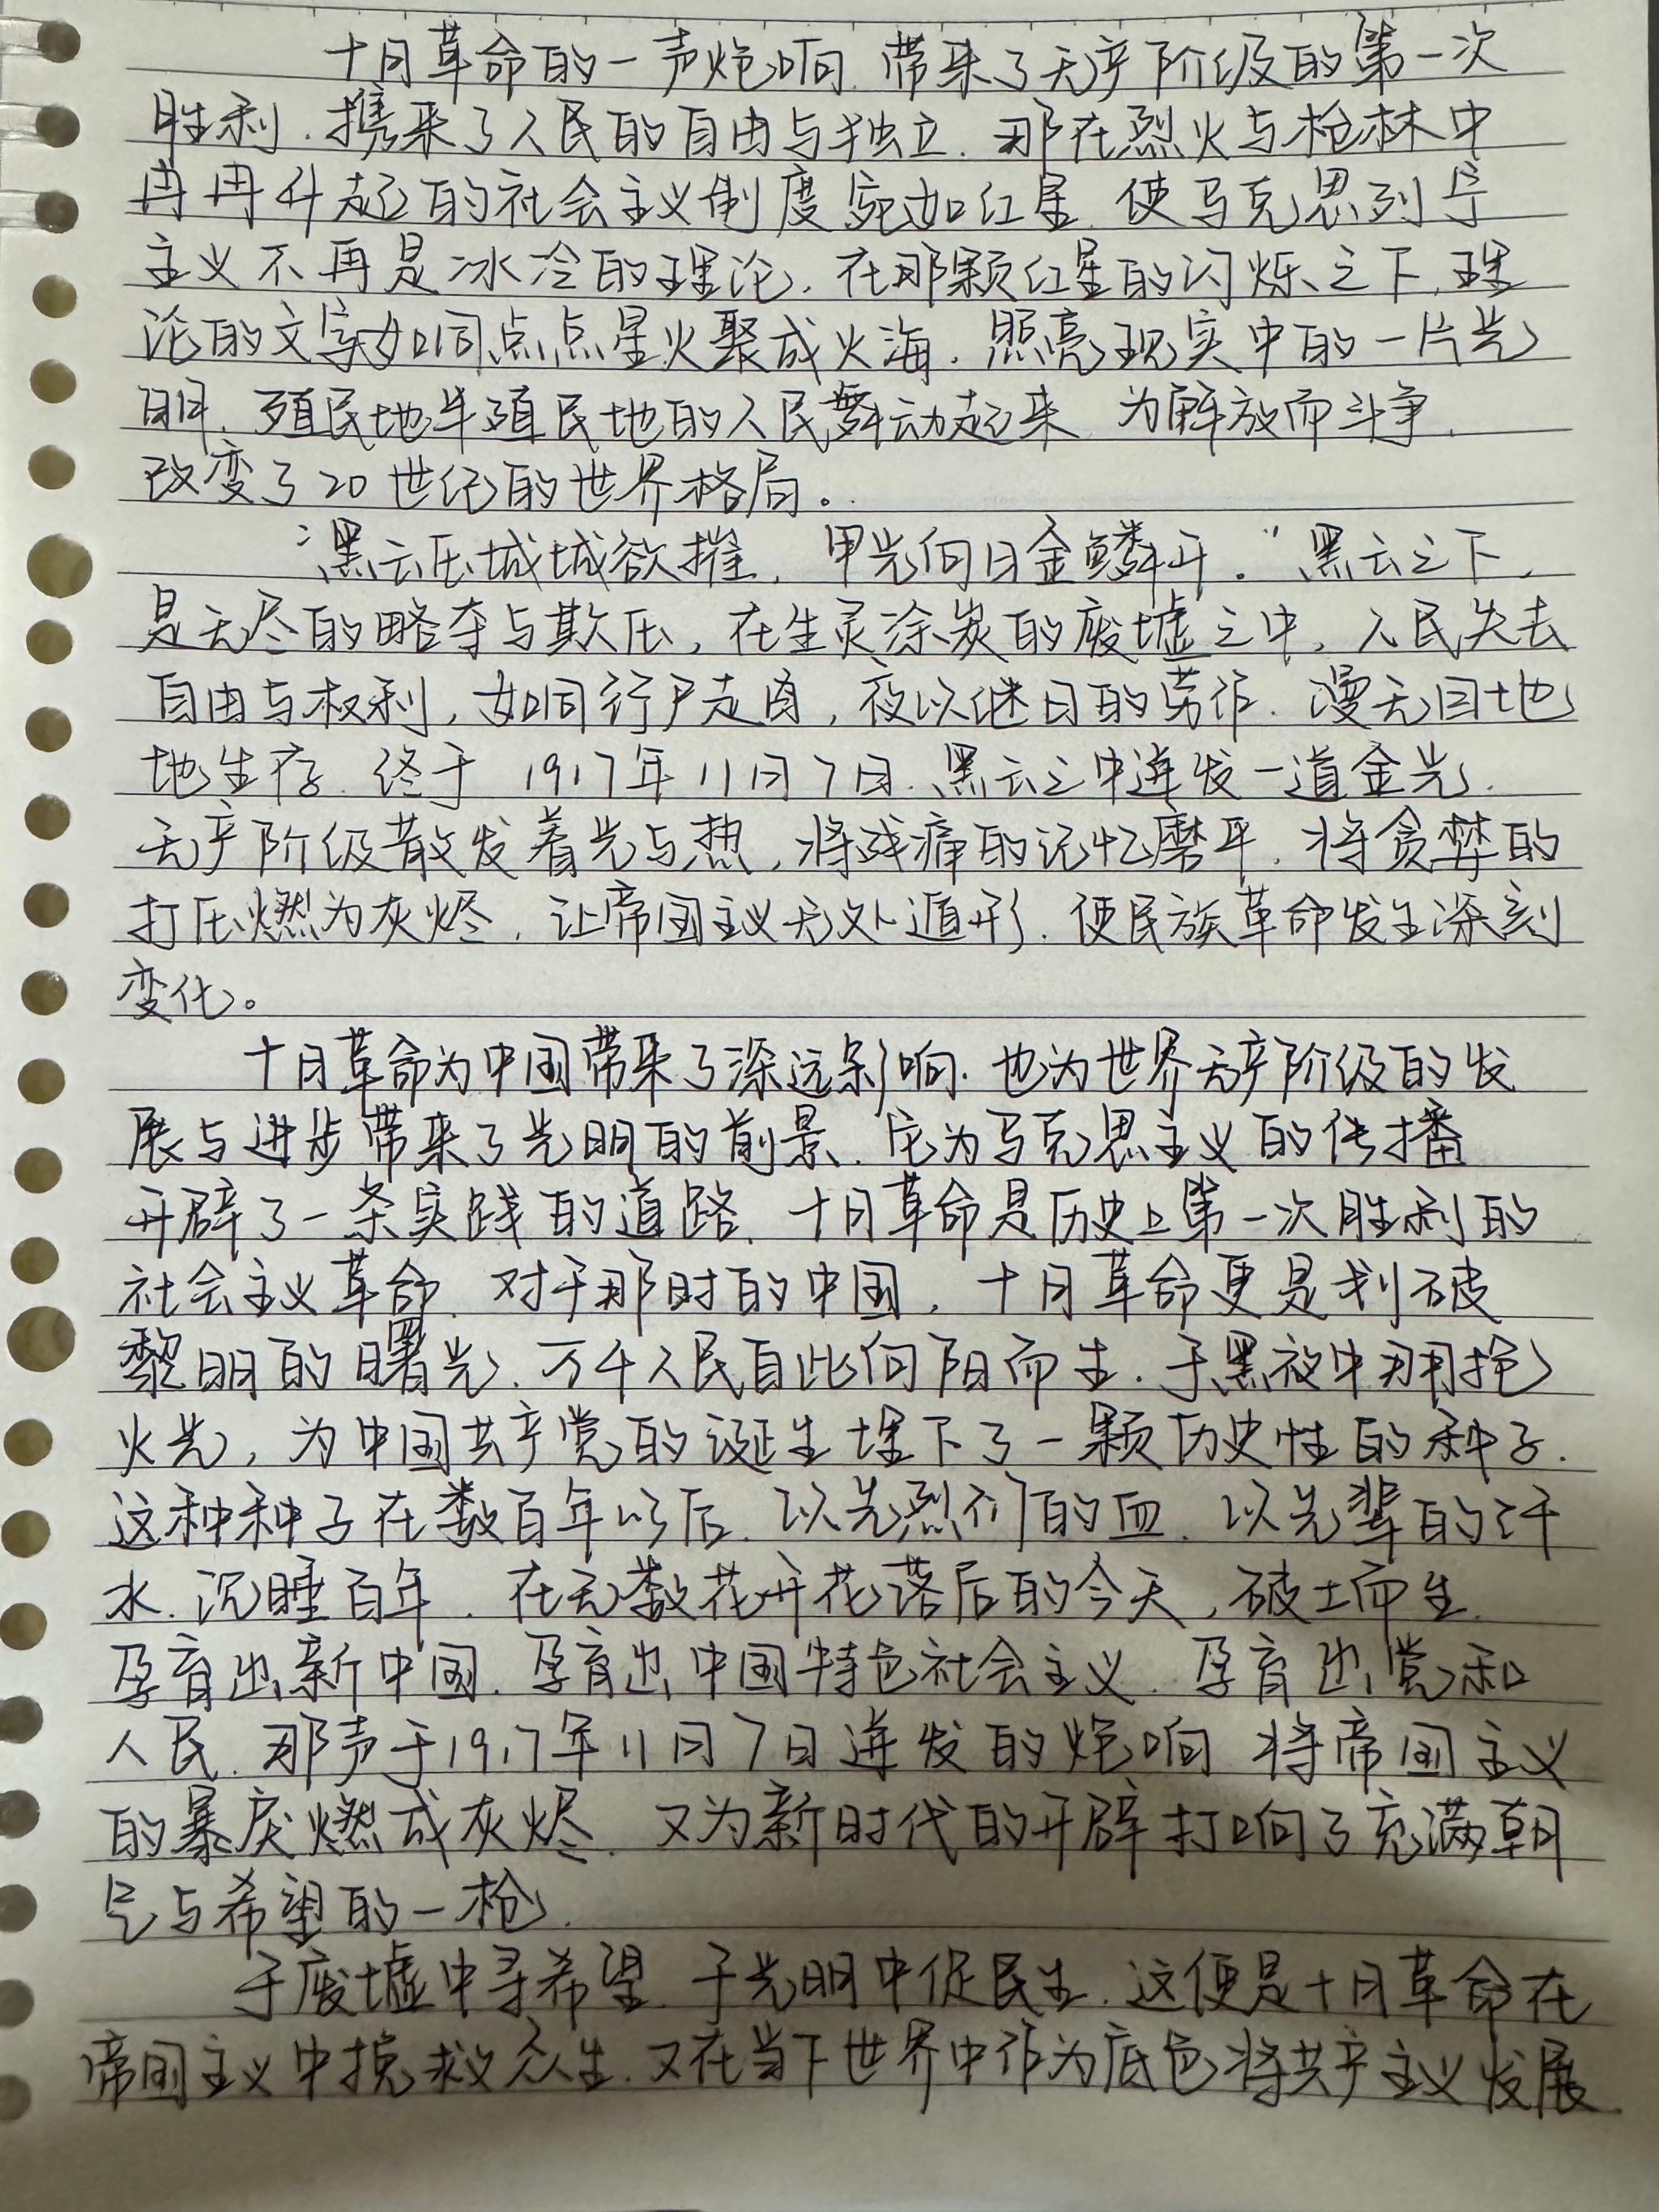 十月革命的一声炮响.带来了无产阶级的第一次
胜利.携来了人民的自由与独立.那在烈火与枪林中
冉冉升起的社会主义制度宛如红星.使马克思列宁
主义不再是冰冷的理论.在那颗红星的闪烁之下.理
论的文字如同点点星火聚成火海.照亮现实中的一片光
明.殖民地半殖民地的人民舞动起来.为解放而斗争.
改变了20世纪的世界格局。
“黑云压城城欲摧,甲光向日金鳞开。”黑云之下,
是无尽的略夺与欺压,在生灵涂炭的废墟之中,人民失去
自由与权利,如同行尸走肉,夜以继日的劳作.漫无目地
地生存.终于1917年11月7日.黑云之中迸发一道金光.
无产阶级散发着光与热,将残痛的记忆磨平.将贪婪的
打压燃为灰烬,让帝国主义无处遁形.使民族革命发生深刻
变化。
十月革命为中国带来了深远影响.也为世界无产阶级的发
展与进步带来了光明的前景.它为马克思主义的传播
开辟了一条实践的道路.十月革命是历史上第一次胜利的
社会主义革命.对于那时的中国,十月革命更是划破
黎明的曙光.万千人民自此向阳而生.于黑夜中拥抱
火光,为中国共产党的诞生埋下了一颗历史性的种子.
这种种子在数百年以后.以先烈们的血.以先辈的汗
水.沉睡百年.在无数花开花落后的今天,破土而生.
孕育出新中国.孕育出中国特色社会主义.孕育出党和
人民.那声于1917年11月7日迸发的炮响.将帝国主义
的暴戾燃成灰烬.又为新时代的开辟打响了充满朝
气与希望的一枪.
于废墟中寻希望.于光明中促民生.这便是十月革命在
帝国主义中挽救众生.又在当下世界中作为底色将共产主义发展